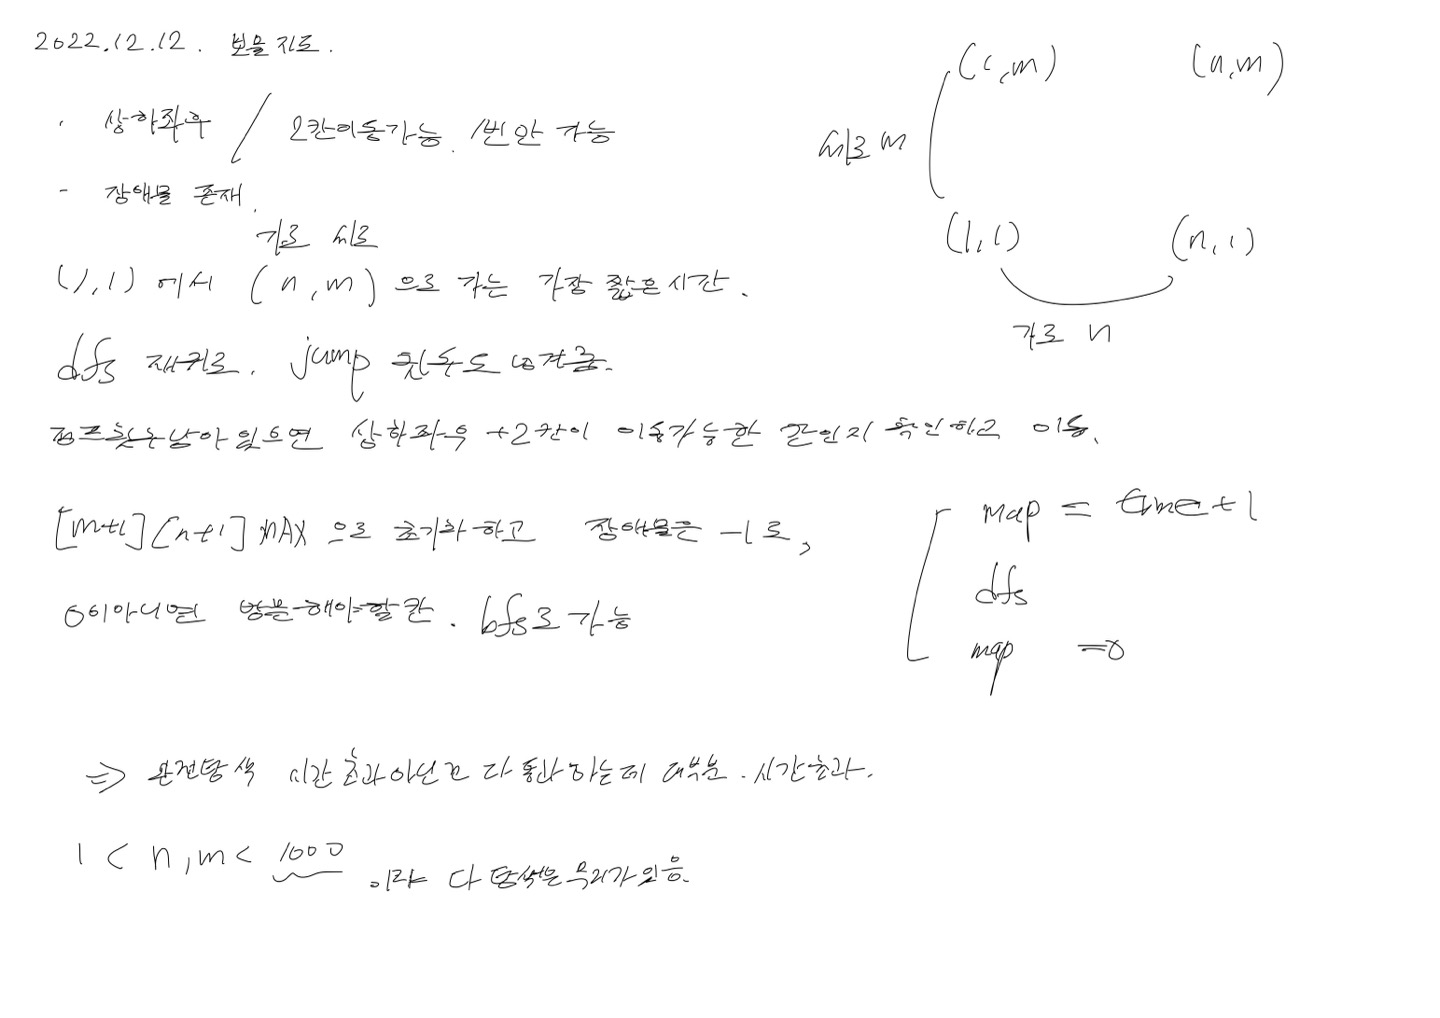 2022.12.12. 보물지도.
· 상하좌우 / 2칸이동가능. 1번만 가능
- 장애물 존재.
가로 세로
(1,1) 에서 (n,m) 으로 가는 가장 짧은 시간.
dfs 재귀로. jump 횟수도 넘겨줌.
점프횟수남아있으면 상하좌우 +2칸이 이동가능한 칸인지 확인하고 이동.
[m+1][n+1] MAX 으로 초기화하고 장애물은 -1로,
0이아니면 방문해야할칸. bfs로 가능
⇒ 완전탐색 시간초과아닌건 다 통과하는데 대부분. 시간초과.
1 < n,m < 1000 이라 다 탐색은 무리가있음.
(1,m) (n,m)
세로 m
(1,1) (n,1)
가로 n
map = time+1
dfs
map =0